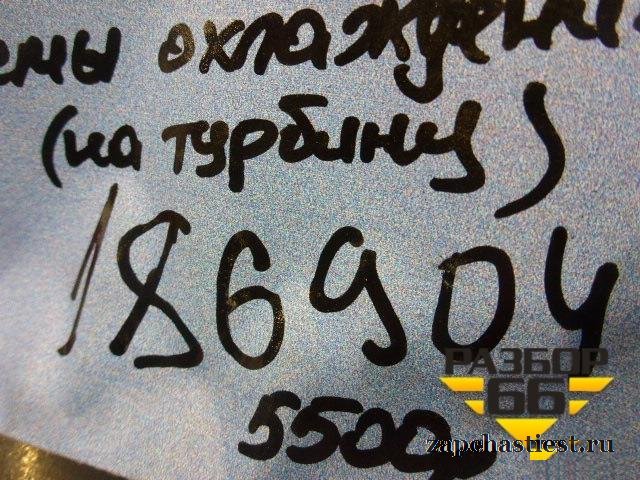 емы охлажден
(на турбину)
186904
5500р
РАЗБОР
66
zapchastiest.ru